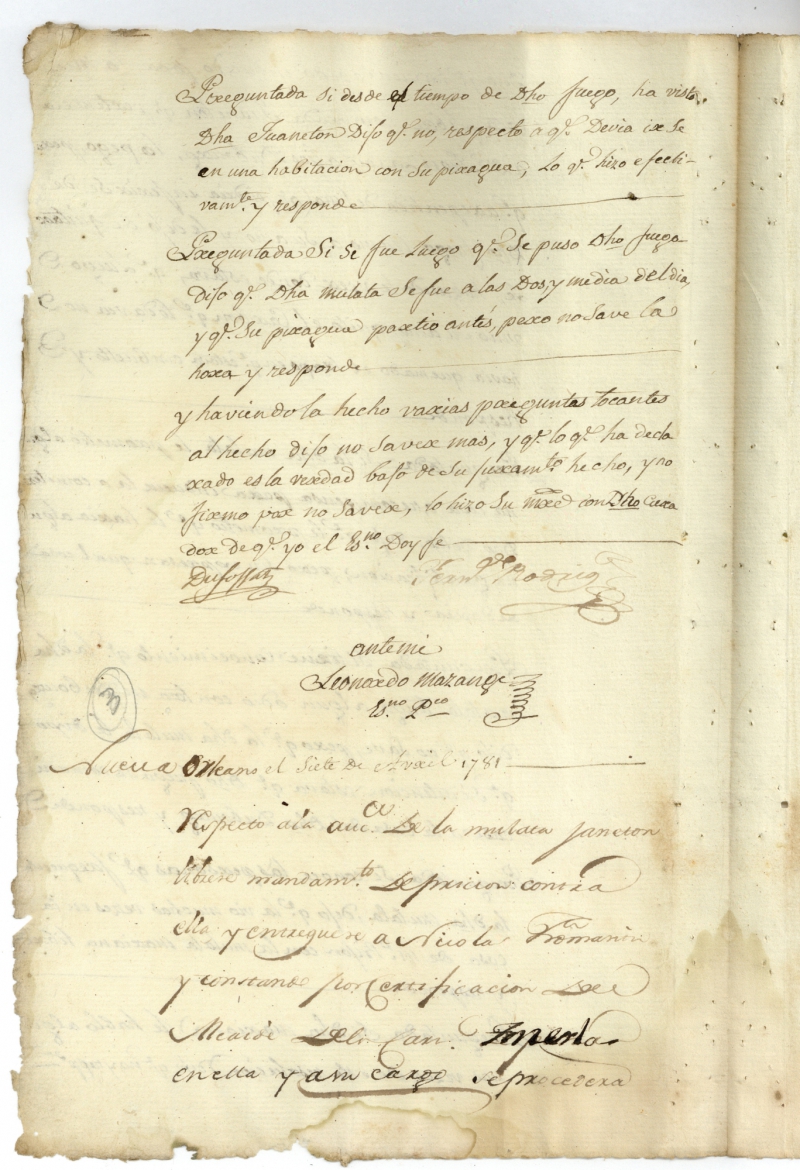 Preguntada si desde el tiempo de Dho fuego, ha visto
Dha Juaneton Dijo qe. no, respecto a qe. Devia irse
en una habitacion con su piragua, lo qe. hizo efecti-
vamte. y responde
Preguntada Si se fue Luego qe. Se puso Dho fuego
Dijo qe. Dha mulata Se fue a las Dos, y media del dia,
y qe. Su piragua partio antes, pero no save la
hora y responde
y haviendola hecho varias preguntas tocantes
al hecho dijo no saver mas, y qe. lo qe. ha decla
rado es la verdad bajo de Su juramto. hecho, y no
firmo por no saver, lo hizo Su Mrced con Dho Cura
dor de qe. yo el Esno. Doy fe
Dufossat Rodrigz
ante mi
Leonardo Mazange
Esno. Pco
3
Nueva Orleans el Siete de Avril 1781
Respecto ála auca. De la mulata Janeton
librese mandamto. De pricion contra
ella y entreguese a Nicolas
y constando por Certificacion Del
Alcaide De la Carl.
en ella y a su cargo se procedera